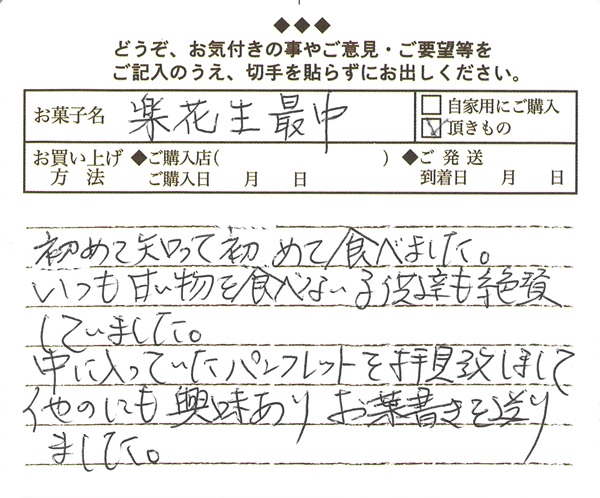 ◆◆◆
どうぞ、お気付きの事やご意見・ご要望等を
ご記入のうえ、切手を貼らずにお出しください。
お菓子名 楽花生最中 □自家用にご購入
☑頂きもの
お買い上げ方法 ◆ご購入店( ) ◆ご発送
ご購入日 月 日 到着日 月 日
初めて知って初めて食べました。
いつも甘い物を食べない子供達も絶賛
していました。
中に入っていたパンフレットを拝見致しまして
他のにも興味あり お葉書きを送り
ました。